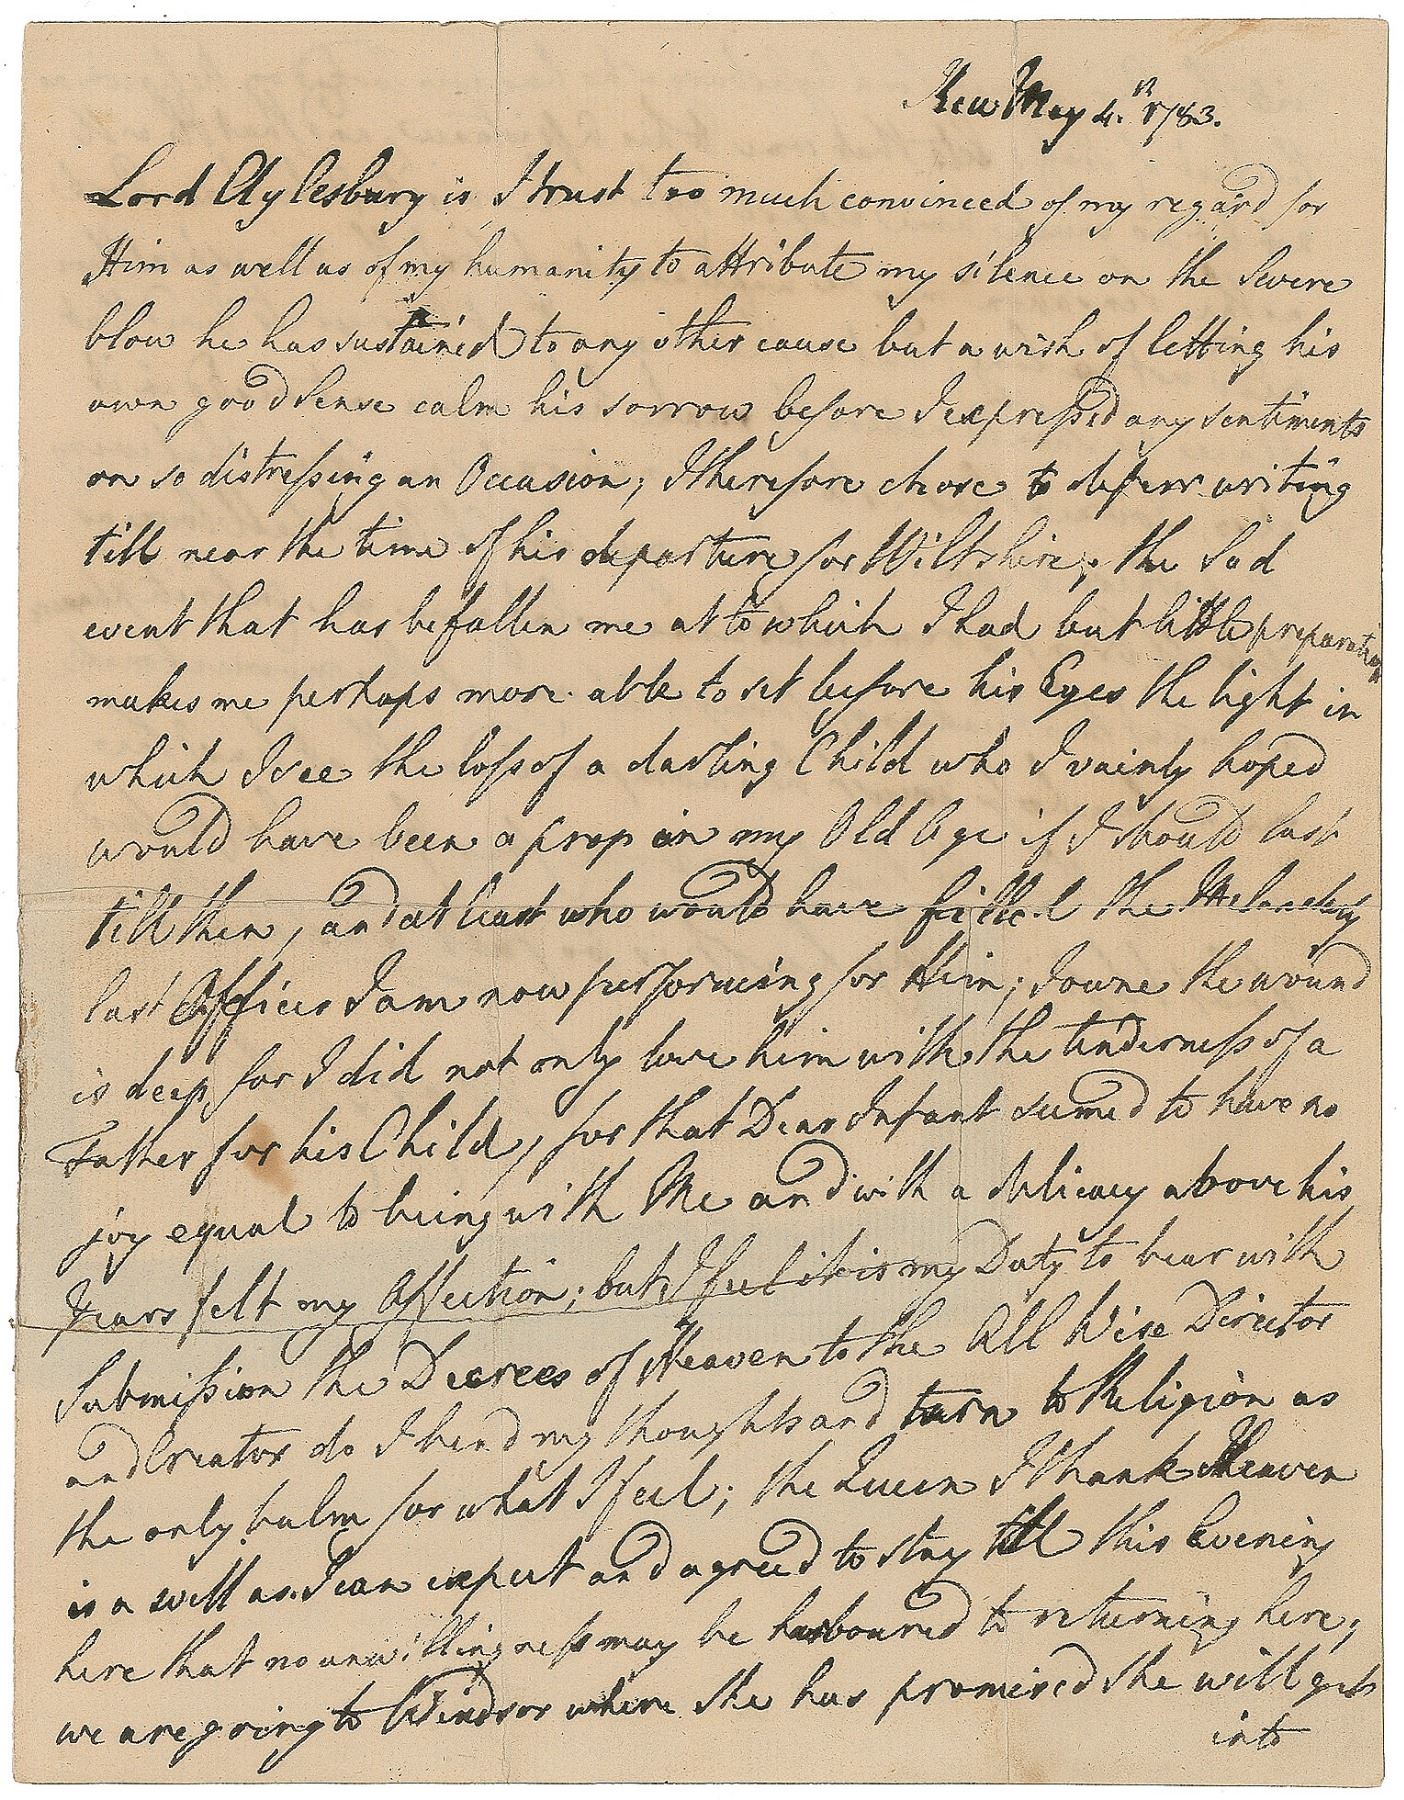 Kew May 4.th 1783.
Lord Aylesbury is I trust too much convinced of my regard for
Him as well as of my humanity to attribute my silence on the Severe
blow he has sustained to any other cause but a wish of letting his
own good Sense calm his sorrow before I expressed any sentiments
on so distressing an Occasion; I therefore chose to deferr writing
till near the time of his departure for Wiltshire; the Sad
event that has befallen me at to which I had but little preparation
makes me perhaps more able to set before his Eyes the light in
which I see the loss of a darling Child who I vainly hoped
would have been a prop in my Old Age if I should last
till then, and at least who would have filled the Melancholy
last Offices I am now performing for Him; I owne the wound
is deep, for I did not only love him with the tenderness of a
Father for his Child, for that Dear Infant seemed to have no
joy equal to being with Me and with a delicacy above his
Years felt my Affection; but I feel it is my Duty to bear with
Submission the Decrees of Heaven to the All Wise Director
and Creator do I bend my thoughts and turn to Religion as
the only balm for what I feel; the Queen I thank Heaven
is a well as I can expect and agreed to stay till this Evening
here that no unwillingness may be harboured to returning here;
we are going to Windsor where she has promised she will get
into